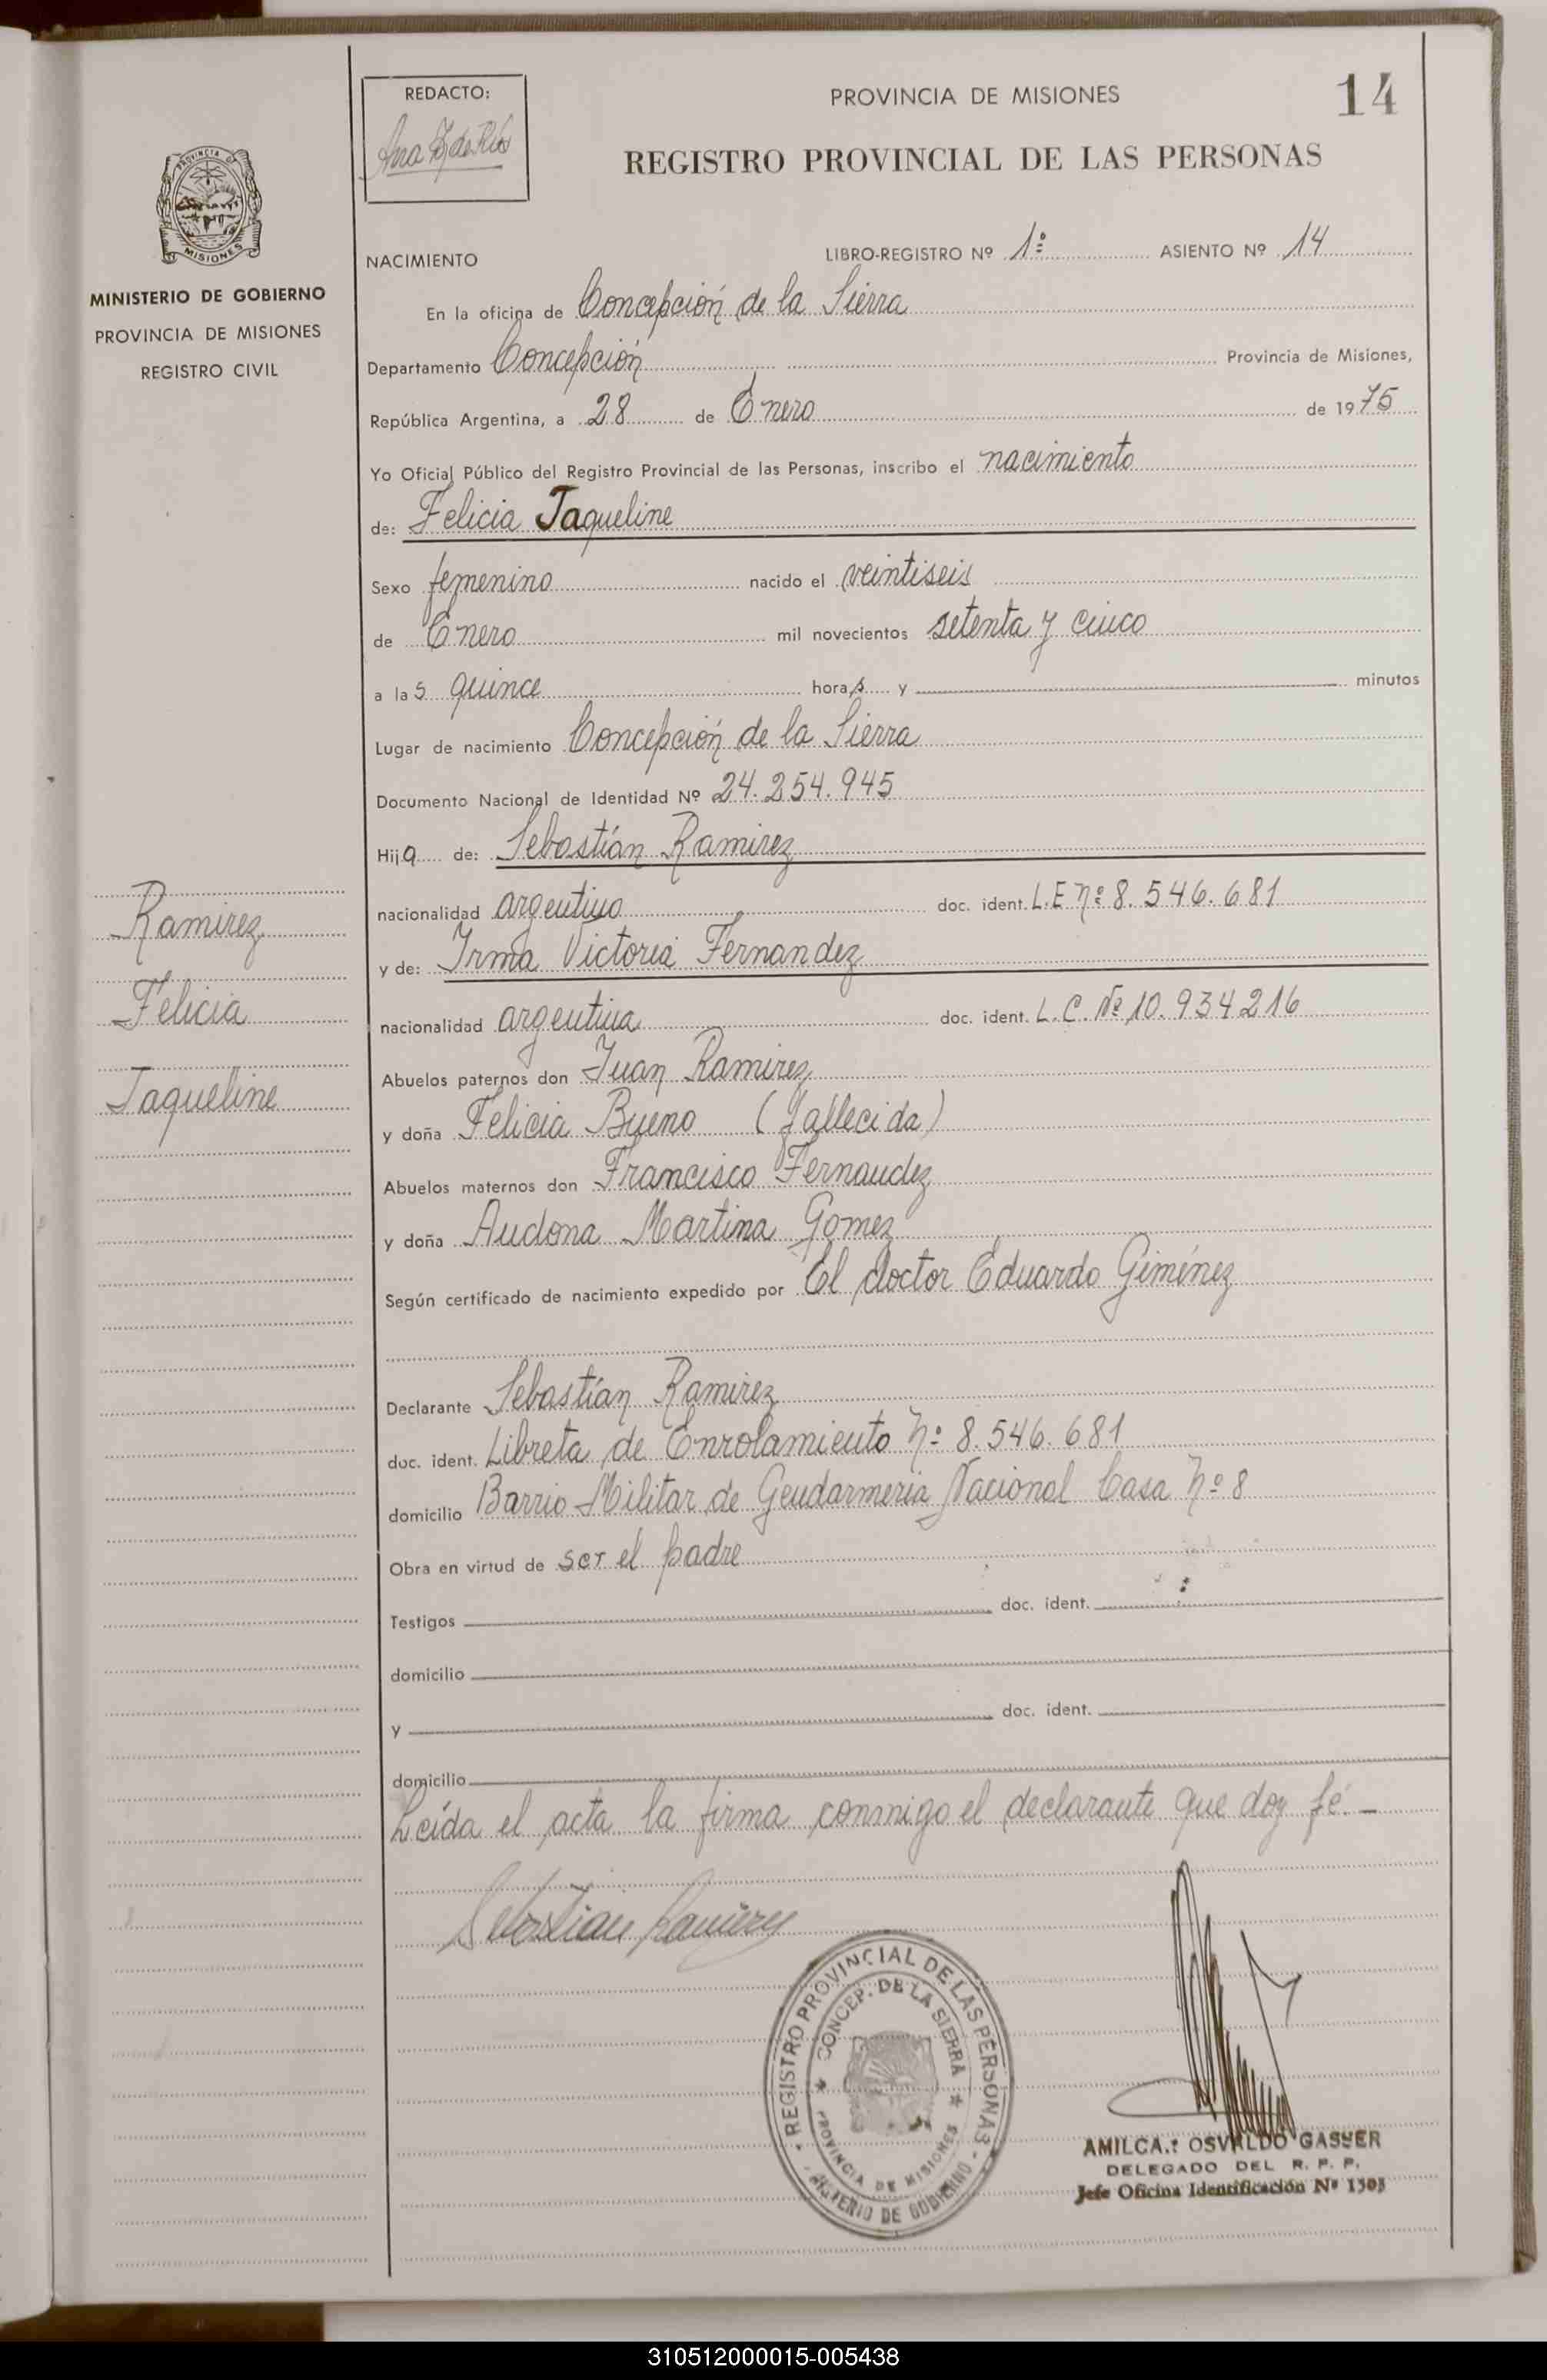 REDACTO:
PROVINCIA DE MISIONES
14
REGISTRO PROVINCIAL DE LAS PERSONAS
PROVINCIA DE
MISIONES
MINISTERIO DE GOBIERNO
PROVINCIA DE MISIONES
REGISTRO CIVIL
NACIMIENTO LIBRO-REGISTRO Nº 1º ASIENTO Nº 14
En la oficina de Concepción de la Sierra
Departamento Concepción Provincia de Misiones,
República Argentina, a 28 de Enero de 1975
Yo Oficial Público del Registro Provincial de las Personas, inscribo el nacimiento
de: Felicia Jaqueline
Sexo femenino nacido el veintiseis
de Enero mil novecientos setenta y cinco
a las quince horas y minutos
Lugar de nacimiento Concepción de la Sierra
Documento Nacional de Identidad Nº 24.254.945
Hija de: Sebastían Ramirez
nacionalidad argentino doc. ident. L.E nº 8.546.681
y de: Irma Victoria Fernandez
nacionalidad argentina doc. ident. L.C. Nº 10.934216
Abuelos paternos don Juan Ramirez
y doña Felicia Bueno (fallecida)
Abuelos maternos don Francisco Fernandez
y doña Audona Martina Gomez
Según certificado de nacimiento expedido por El doctor Eduardo Giménez
Declarante Sebastían Ramirez
doc. ident. Libreta de Enrolamiento nº 8.546.681
domicilio Barrio Militar de Gendarmeria Nacional Casa nº 8
Obra en virtud de ser el padre
Testigos doc. ident.
domicilio
y doc. ident.
domicilio
Leída el acta la firma conmigo el declarante que doy fé.-
Ramirez
Felicia
Jaqueline
Sebastian Ramirez
REGISTRO PROVINCIAL DE LAS PERSONAS
CONCEP. DE LA SIERRA
PROVINCIA DE MISIONES
DE GOBIERNO
OSVALDO
DELEGADO DEL R. P. P.
Jefe Oficina Identificación Nº 1303
310512000015-005438